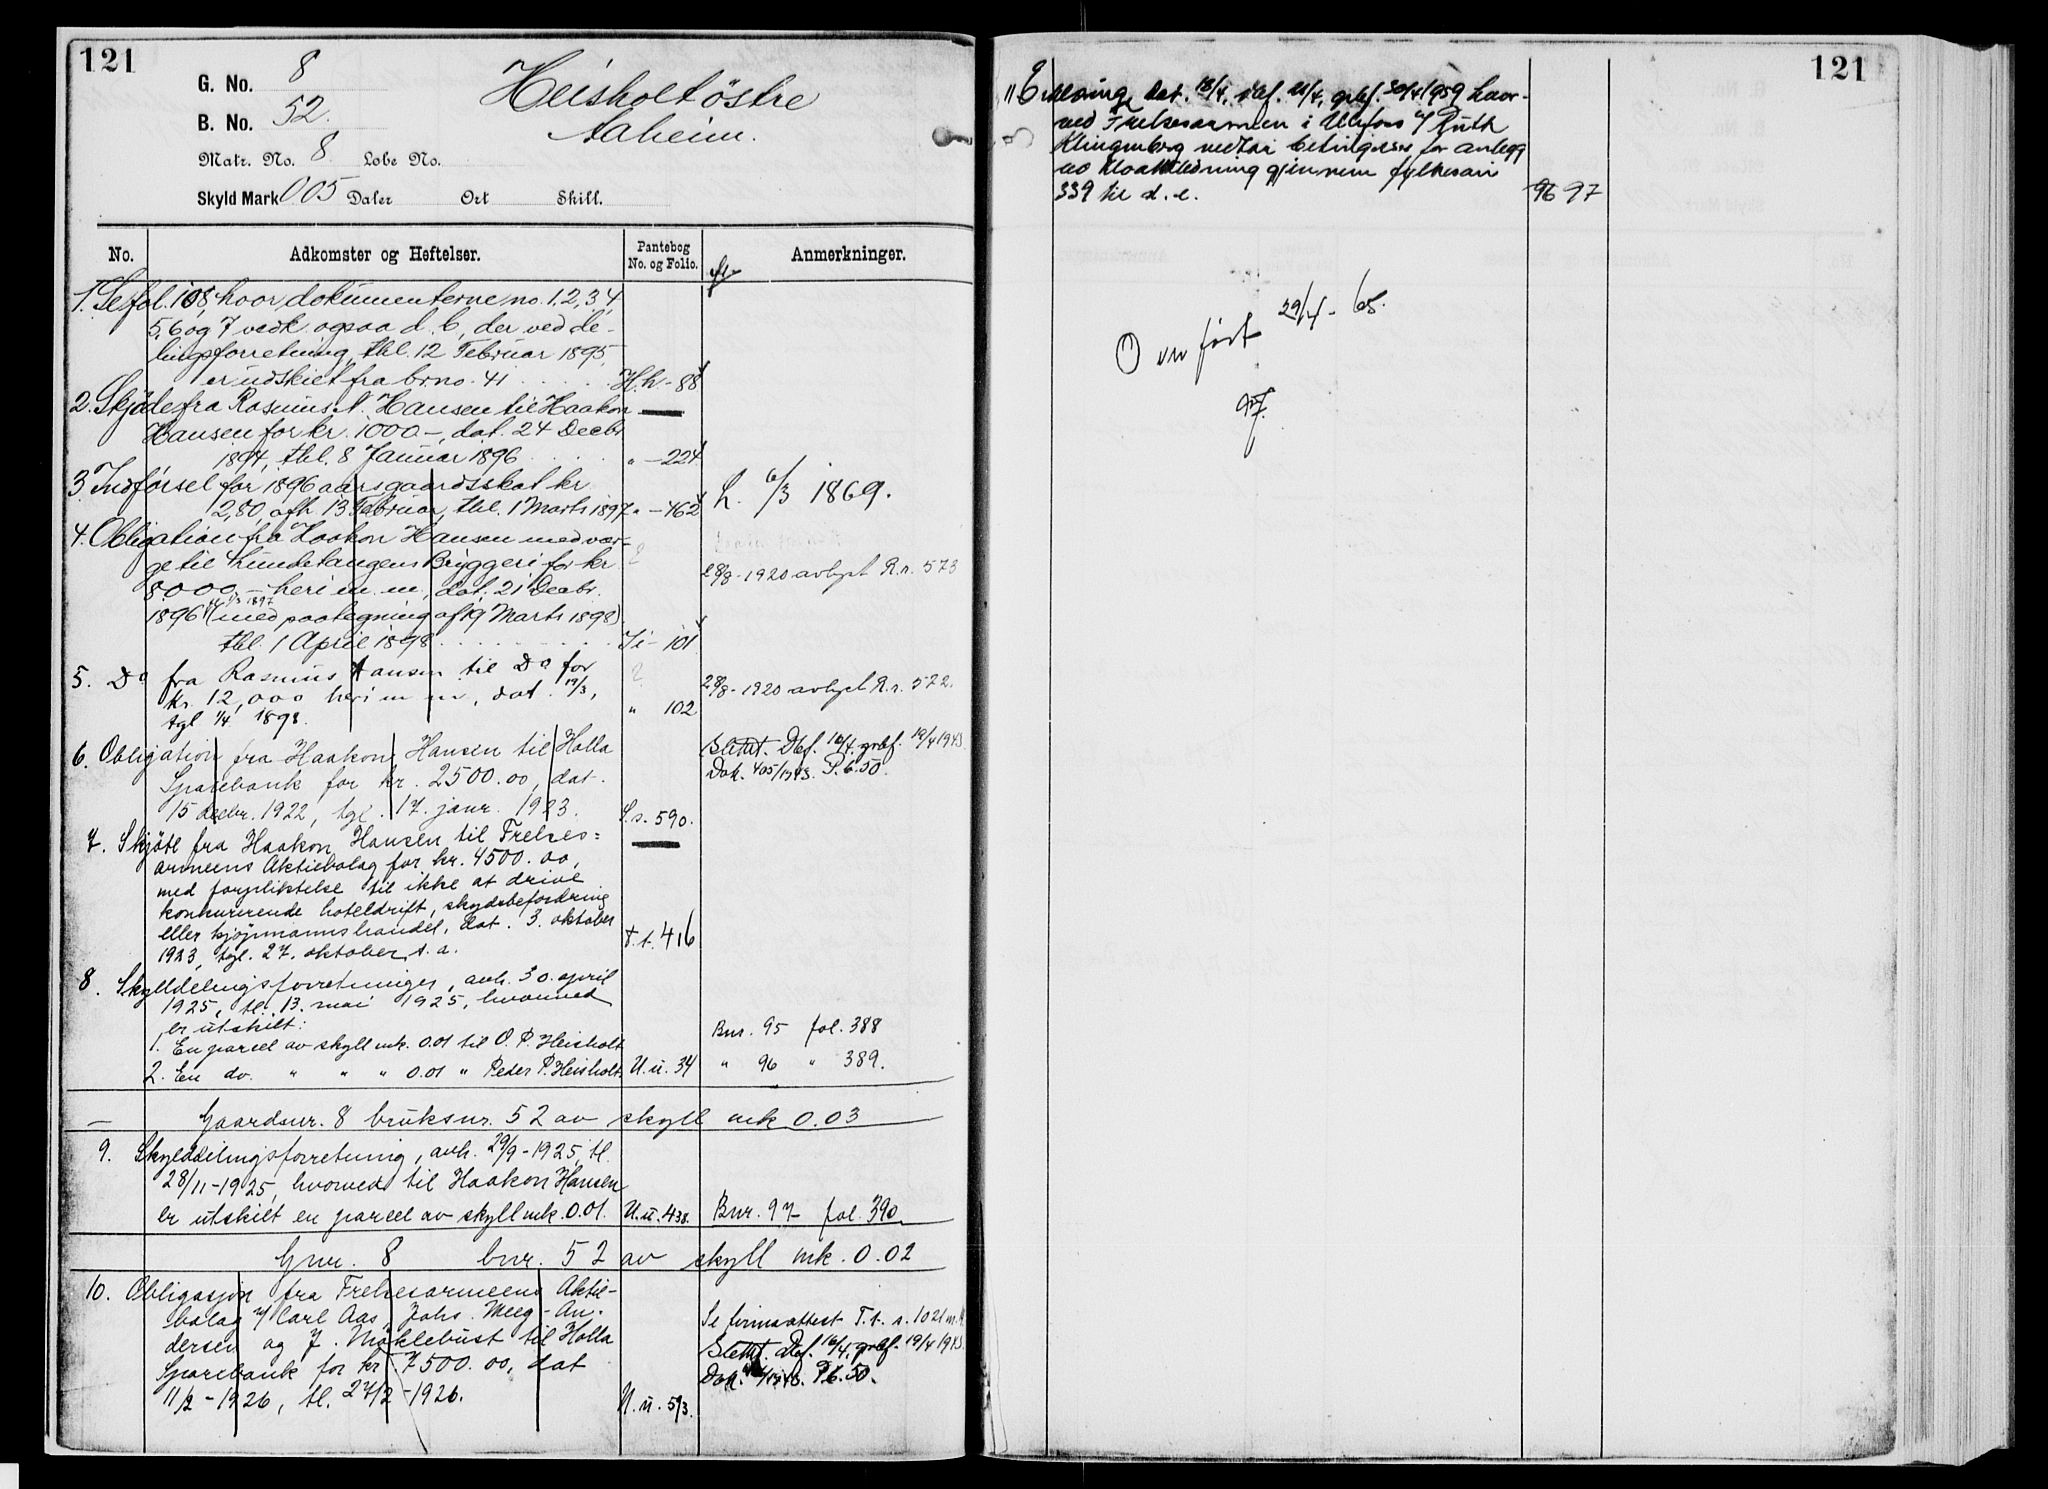 121
G. No. 8
Heisholt östre
B. No. 52.
Aaheim.
Matr. No. 8 Løbe No.
Skyld Mark 0 05 Daler Ort Skill.
No. Adkomster og Heftelser. Pantebog No. og Folio. Anmerkninger.
1. Se fol. 108, hvor dokumenterne no. 1, 2, 3, 4,
5, 6 og 7 vedk. ogsaa d. b., der ved de-
lingsforretning, thl. 12 Februar 1895,
er udskilt fra brno. 41 . . . . H.h - 88
2. Skjöde fra Rasmus N. Hansen til Haakon
Hansen for kr. 1000 -, dat. 24 Decbr
1894, thl. 8 Januar 1896 . . . . " - 224
3 Indförsel for 1896 aars gaardsskat kr
2,80, afh 13 Februar, thl. 1 Marts 1897 " - 462 L. 6/3 1869.
4. Obligation fra Haakon Hansen med vær-
ge til Lundetangens Bryggeri for kr 28/8 - 1920 avlyst R.r. 573
8000 - heri m. m., dat. 21 Decbr.
1896 tl 1/3 1897 (med paategning af 19 Marts 1898)
thl. 1 April 1898 . . . . I i - 101
5. Do fra Rasmus Hansen til Do for
kr. 12,000 heri m m, dat. 19/3, 28/8 - 1920 avlyst R.r. 572.
tgl 1/4 1898. " 102
6. Obligation fra Haakon Hansen til Holla Slettet. Dbf. 16/4, grbf. 19/4 1943.
Sparebank for kr. 2500.00, dat. Dok. 405/1943. P.b. 50.
15 decbr. 1922, tgl. 17. janr. 1923. S.s. 590.
7. Skjöte fra Haakon Hansen til Frelses=
armeens Aktiebolag for kr. 4500.00,
med forpliktelse til ikke at drive
konkurerende hoteldrift, skydsbefordring
eller kjöpmannshandel, dat. 3. oktober
1923, tgl. 27. oktober s. a. T.t. 416
8. Skylddelingsforretninger, avh. 30. april
1925, tl. 13. mai 1925, hvorved
er utskilt:
1. En parcel av skyll mk. 0.01 til O. P. Heisholt Bnr. 95 fol. 388
2. En do. " " " 0.01 " Peder P. Heisholt. U.u. 34 " 96 " 389.
— Gaardsnr. 8 bruksnr. 52 av skyll mk 0.03
9. Skylddelingsforretning, avh. 29/9 - 1925, tl.
28/11 - 1925, hvorved til Haakon Hansen
er utskilt en parcel av skyll mk. 0.01. U.u. 438. Bnr. 97 fol. 390
Gnr. 8 bnr. 52 av skyll mk. 0.02
10. Obligasjon fra Frelsesarmeens Aktie-
bolag v/ Carl Aas, Johs. Meeg - An- Se firmaattest T.t. s. 1021
dersen og J. Möklebust til Holla Slettet. Dbf. 16/4, grbf. 19/4 1943.
Sparebank for kr 7500.00, dat Dok. P.b. 50.
11/2 - 1926, tl. 27/2 - 1926. U.u. 573.
121
11 Erklæring dat. 18/4, dbf. 28/4, grbf. 30/4 1959 hvor-
ved Frelsesarmeen i Ulefoss v/ Ruth
Klingenberg vedtar betingelser for anlegg
av kloakkledning gjennem fylkesvei
339 til d. e. 96 97
Overfört 29/4 - 65.